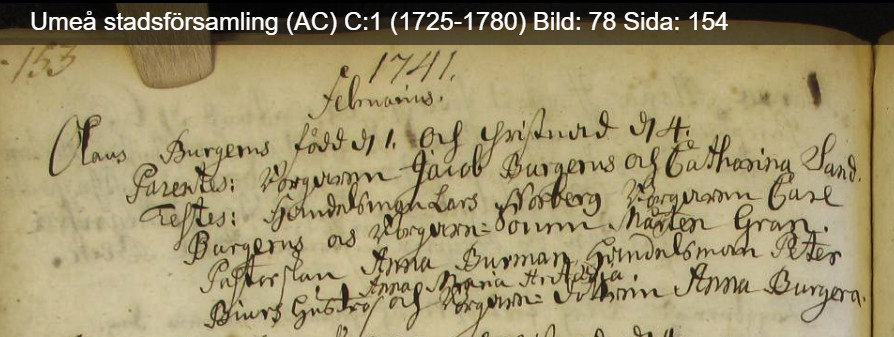 Umeå stadsförsamling (AC) C:1 (1725-1780) Bild: 78 Sida: 154
153
1741.
Februarius.
Olaus Burgerus född d 1. och christnad d 4.
Parentes: Borgaren Jacob Burgerus och Catharina Sand.
Testes: Handelsman Lars Norberg Borgaren Carl
Burgerus och Borgare-Sonen Mårten Gran.
Pastorskan Anna Burman, Handelsman Peter
Anna Maria
Biurs Hustro och Borgare-Dottren Anna Burgera.